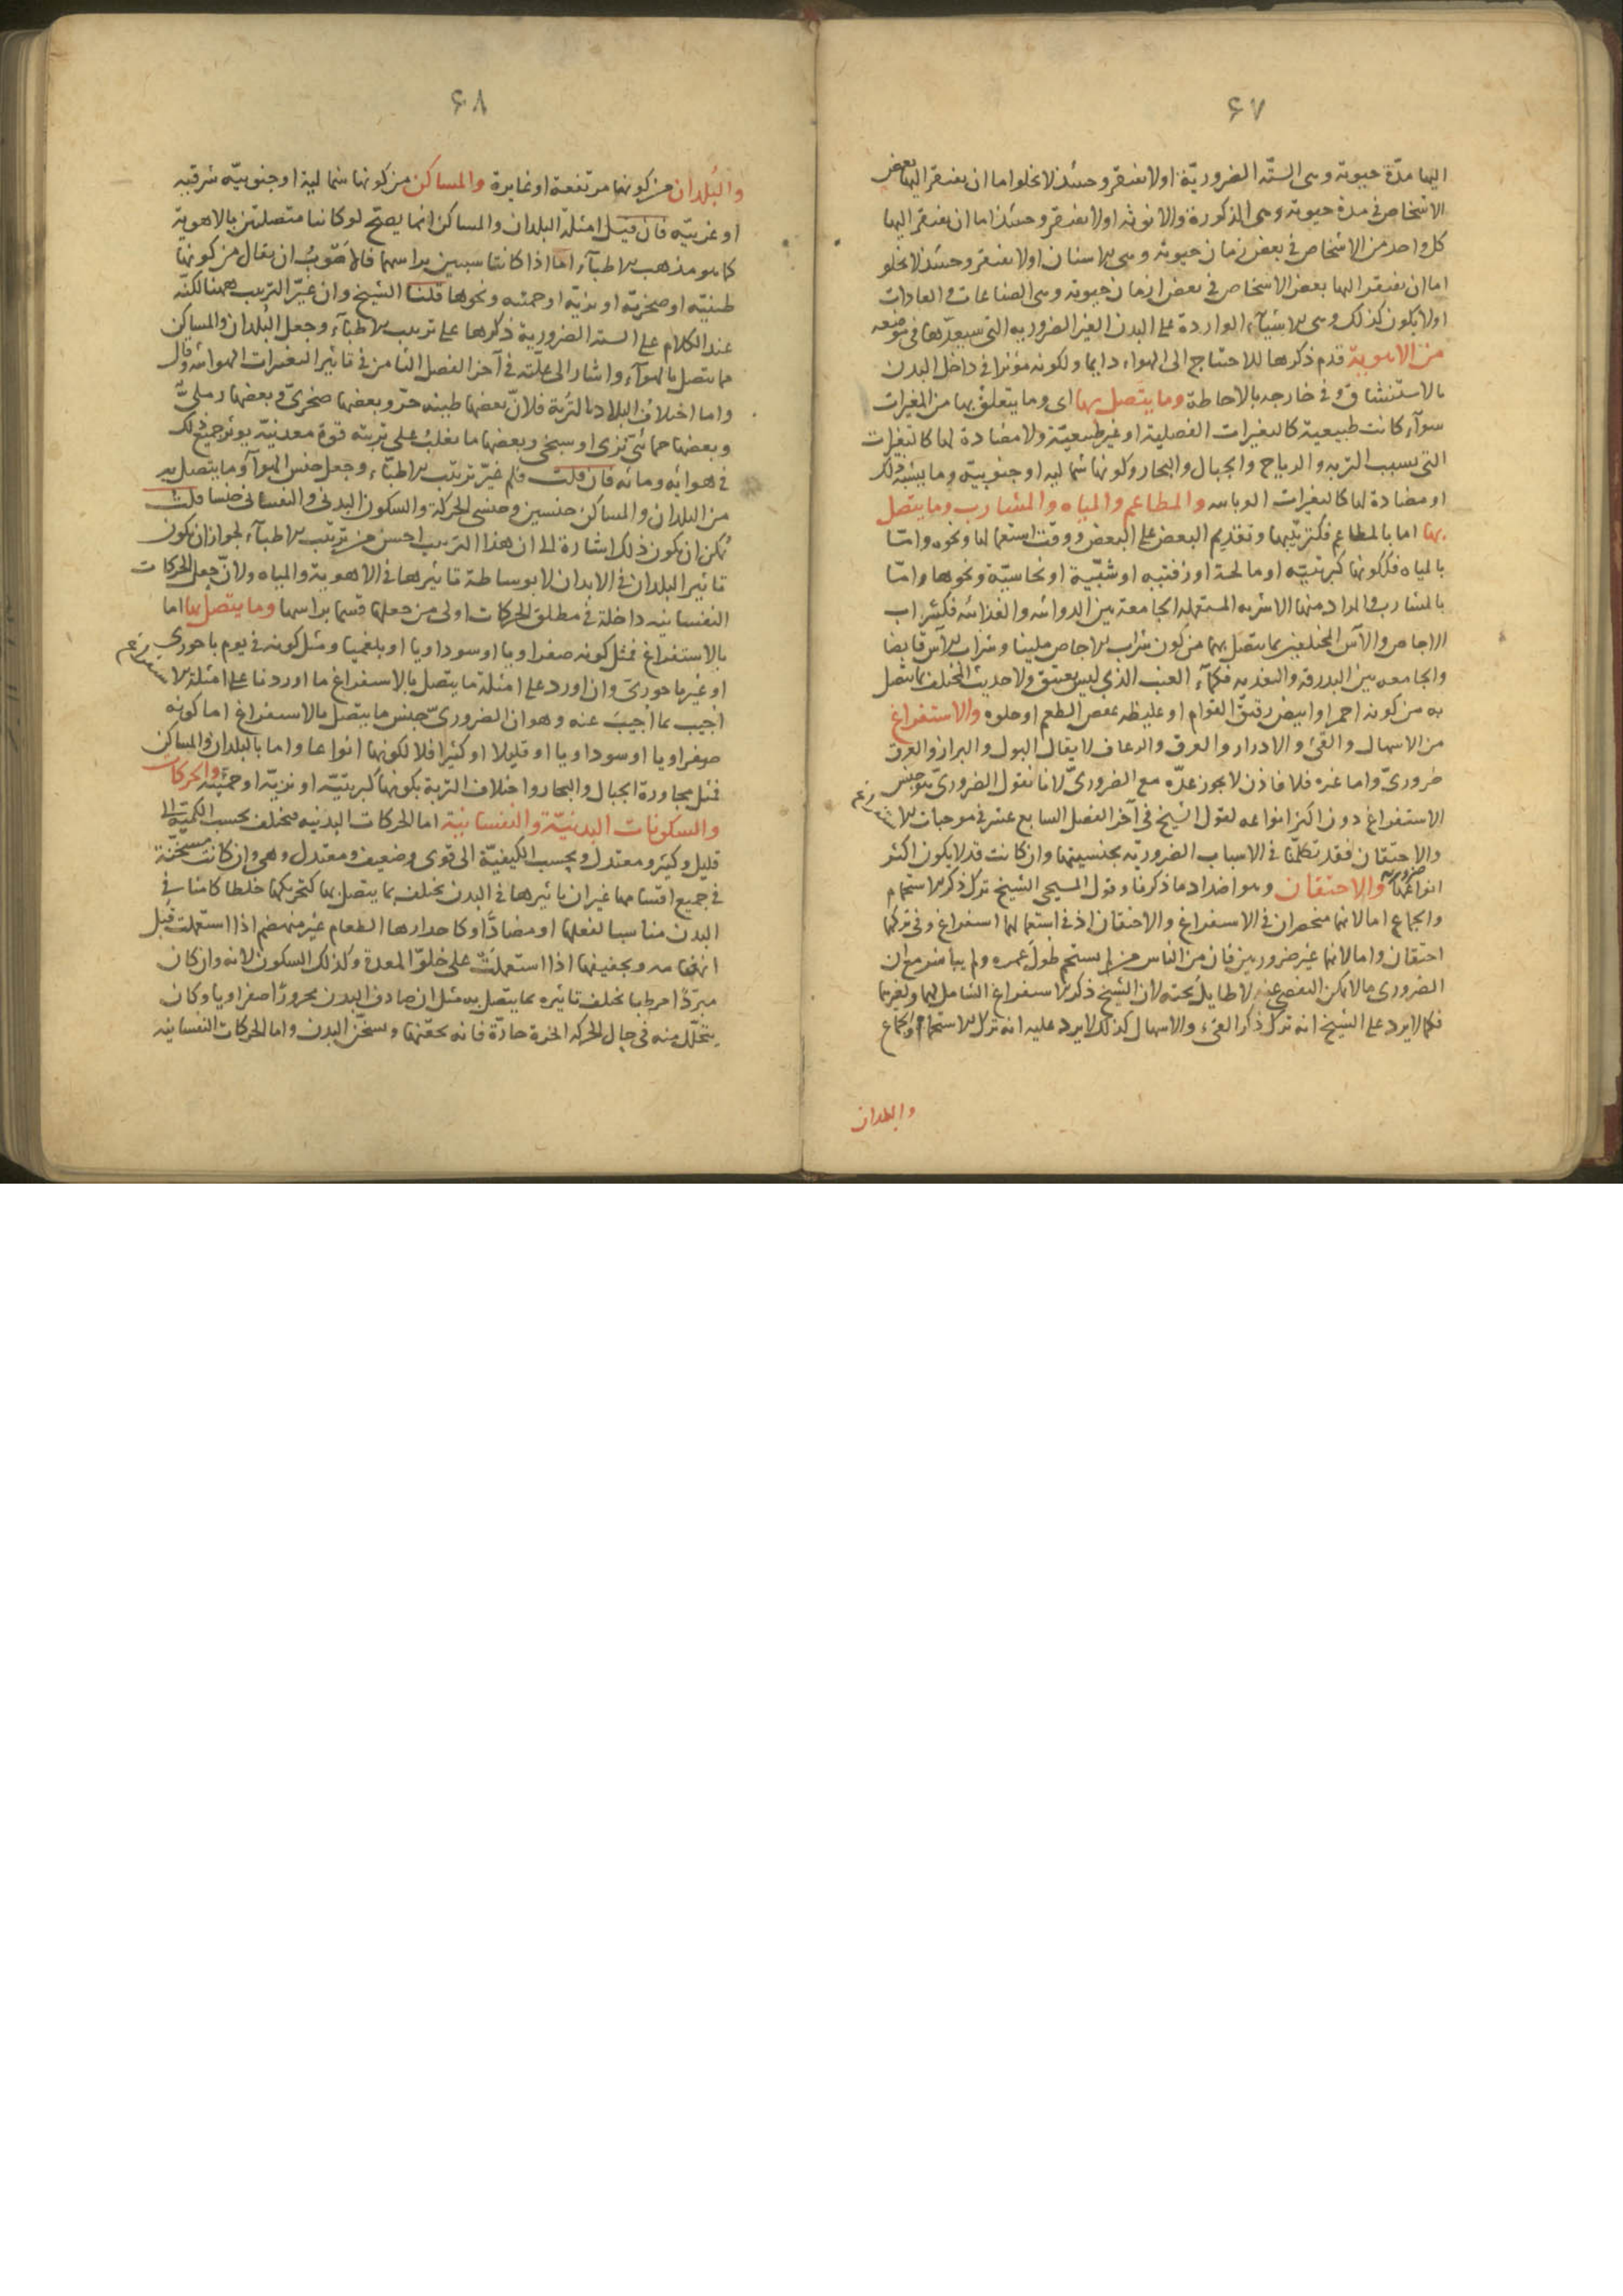 ۶۷
اليها مدّة حيوته وهى الستّه الضروريّة اولا يفتقر وحينئذ لا يخلوا اما ان يفتقر اليها بعض
الاشخاص فى مدة حيوته وهى الذكورة والانوثه اولا يفتقر وحينئذ اما ان يفتقر اليها
كل واحد من الاشخاص فى بعض زمان حيوته وهى الاسنان اولا يفتقر وحينئذ لا يخلو
اما ان يفتقر اليها بعض الاشخاص فى بعض ازمان حيوته وهى الصناعات والعادات
اولا يكون كذلك وهى الاشيآء الواردة على البدن الغير الضروريه التى سيعدّها فى موضعه
من الاهوية قدم ذكرها للاحتياج الى الهواء دايما ولكونه مؤثرا فى داخل البدن
بالاستنشاق وفى خارجه بالاحاطة وما يتّصل بها اى وما يتعلق بها من المغيرات
سوآء كانت طبيعية كالتغيرات الفصلية او غير طبيعيّة ولا مضادة لها كالتغيرات
التى بسبب التربه والرياح والجبال والبحار وكونها شماليه او جنوبيّة وما يشبه ذلك
او مضادة لها كالتغيرات الوبائيه والمطاعم والمياه والمشارب وما يتصل
بها اما بالمطاعم فكترتيبها وتقديم البعض على البعض ووقت استعمالها ونحوه وامّا
بالمياه فككونها كبريتيّه او مالحة او زفتيه او شبّيّة او نحاسيّة ونحوها وامّا
بالمشارب والمراد منها الاشربه المستعمله الجامعة بين الدوائيه والغذائيه فكشراب
الاجاص والآس المختلفين بما يتصل بهما من كون شراب الاجاص ملينا وشراب الآس قابضا
والجامعه بين البدرقه والتغذيه فكمآء العنب الذى ليس بعتيق ولا حديث المختلف بما يتصل
به من كونه احمر او ابيض رقيق القوام او غليظه عفص الطعم او حلوه والاستفراغ
من الاسهال والقئ والادرار والعرق والرعاف لا يقال البول والبراز والعرق
ضرورىّ واما غيره فلا فاذن لا يجوز عدّه مع الضرورىّ لانا نقول الضرورىّ هو جنس
الاستفراغ دون اكثر انواعه لقول الشيخ فى آخر الفصل السابع عشر فى موجبات الاستفراغ
والاحتقان فقد تكلمّنا فى الاسباب الضروريّه بجنسيتها وان كانت قد لا يكون اكثر
انواعها ضرورية والاحتقان وهو اضداد ما ذكرنا وقول المسيحى الشيخ ترك ذكر الاستحمام
والجماع اما لانهما منحصران فى الاستفراغ والاحتقان اذ فى استعمالهما استفراغ وفى تركهما
احتقان واما لانهما غير ضروريين فان من الناس من لم يستحم طول عمره ولم يباضع مع ان
الضرورى ما لا يمكن التفصى عنه لا طايل تحته لان الشيخ ذكر الاستفراغ الشامل لهما ولغيرهما
فكما لا يرد على الشيخ انه ترك ذكر القئ والاسهال كذلك لا يرد عليه انه ترك الاستحمام والجماع
والبلدان
۶۸
والبُلدان من كونها مرتفعة او غايرة والمساكن من كونها شمالية او جنوبيّه شرقيه
او غربيّه فان قيل امثلة البلدان والمساكن انما يصحّ لو كانتا متصلتين بالاهوية
كما هو مذهب الاطبآء اما اذا كانتا سببين براسهما فالاصَوبُ ان يقال من كونها
طينيّه او صخريّة او نزيّه او حمئيه ونحوها قلنا الشيخ وان غيّر الترتيب ههنا لكنّه
عند الكلام على الستة الضرورية ذكرها على ترتيب الاطبآء وجعل البُلدان والمساكن
مما يتصل بالهوآء واشار الى علّته فى آخر الفصل الثامن فى تاثير التغيرات الهوائيه وقال
واما اختلاف البلاد بالتربة فلانّ بعضها طينه حرّ وبعضها صخرىّ وبعضها رملىّ
وبعضها حمائى نزى او سبخى وبعضها ما يغلب على تربته قوة معدنيّه يوثر جميع ذلك
فى هوائه ومائه فان قلت فلم غيّر ترتيب الاطبّاء وجعل جنس الهوآء وما يتصل به
من البلدان والمساكن جنسين وجنسى الحركة والسكون البدنى والنفسانى جنسا قلت
يمكن ان يكون ذلك اشارة الى ان هذا الترتيب احسن من ترتيب الاطبآء لجواز ان يكون
تاثير البلدان فى الابدان لا بوساطة تاثيرها فى الاهوية والمياه ولان جعل الحركات
النفسانيه داخلة فى مطلق الحركات اولى من جعلها قسما براسها وما يتصل بها اما
بالاستفراغ فمثل كونه صفراويا او سوداويا او بلغميا ومثل كونه فى يوم باحورى
او غير باحورىّ وان اورد على امثلة ما يتصل بالاستفراغ ما اوردنا على امثلة الاستفراغ
اُجيب بما اُجيبَ عنه وهو ان الضرورىّ جنس ما يتصل بالاستفراغ اما كونه
صفراويا او سوداويا او قليلا او كثيرا فلا لكونها انواعا واما بالبلدان والمساكن
فمثل مجاورة الجبال والبحار واختلاف التربة بكونها كبريتيّه او نزيّه او حمئيّة والحركات
والسكونات البدنيّة والنفسانية اما الحركات البدنيه فيختلف بحسب الكميّة الى
قليل وكثير ومعتدل وبحسب الكيفيّة الى قوى وضعيف ومعتدل وهى وان كانت مسخّنة
فى جميع اقسامها غير ان تاثيرها فى البدن يختلف بما يتصل بها كتحريكها خلطا كامنا فى
البدن مناسبا لفعلها او مضادًّا وكاحدارها الطعام غير منهضم اذا استعملت قبل
انهضامه وتجفيفها اذا استعملت على خلوّ المعدة وكذلك السكون لانه وان كان
مبرّدًا مرطبا يختلف تاثيره بما يتصل به مثل ان صادف البدن محرورًا صفراويا وكان
يتحلّل منه فى حال الحركه ابخرة حادّة فانه يحقنها ويسخّن البدن واما الحركات النفسانيه